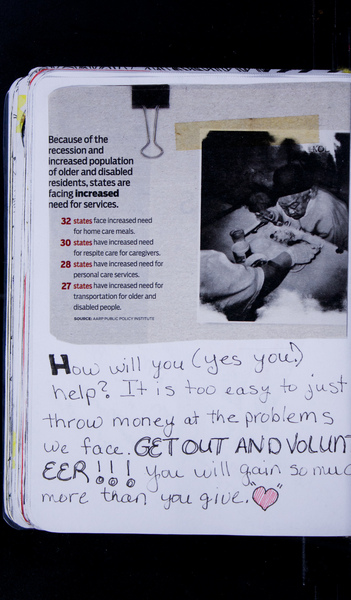 Because of the
recession and
increased population
of older and disabled
residents, states are
facing increased
need for services.
32 states face increased need
for home care meals.
30 states have increased need
for respite care for caregivers.
28 states have increased need for
personal care services.
27 states have increased need for
transportation for older and
disabled people.
SOURCE: AARP PUBLIC POLICY INSTITUTE
How will you (yes you!)
help? It is too easy to just
throw money at the problems
we face. GET OUT AND VOLUNT
EER!!! you will gain so muc
more than you give.